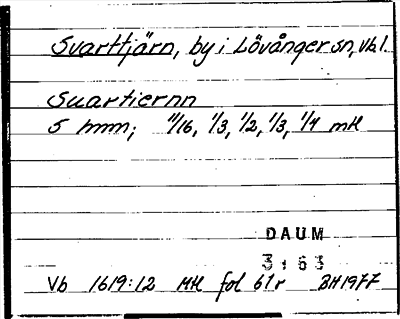 Svarttjärn, by i Lövånger sn, Vb l.
Suartiernn
5 hmn; 11/16, 1/3, 1/2, 1/3, 1/4 mtl
DAUM
3:63
Vb 1619:12 Mtl fol 61r BH1977